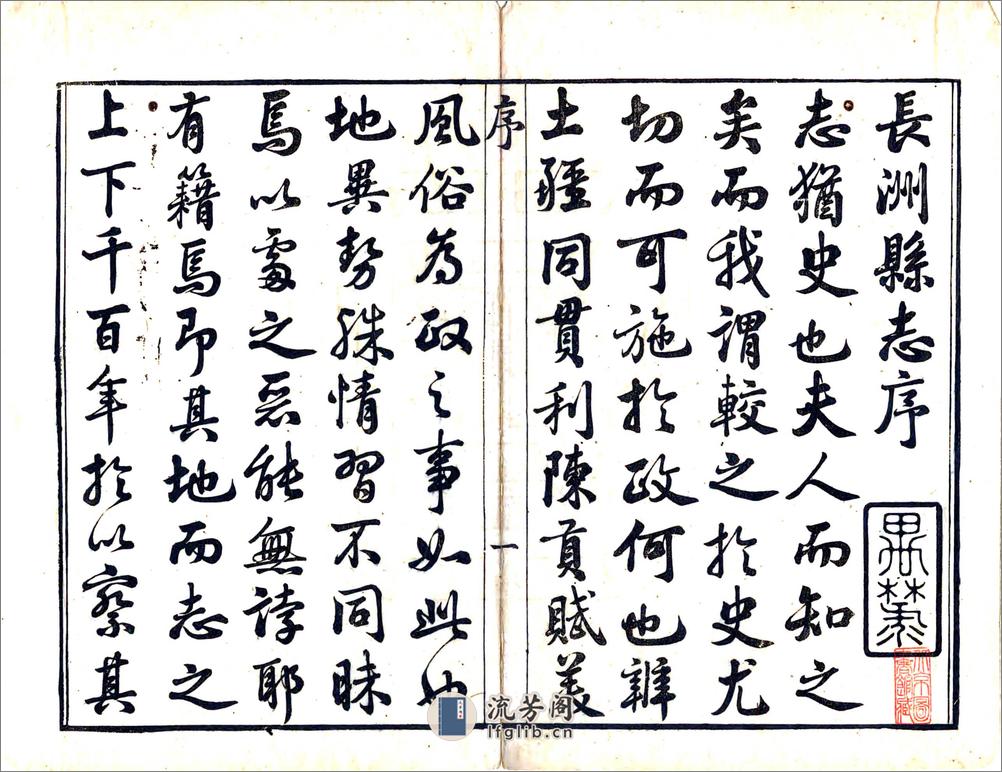 長洲縣志序
志猶史也夫人而知之
矣而我謂較之於史尤
切而可施於政何也辨
土疆同貫利陳貢賦美
序 一
風俗為政之事如此也
地異勢殊情習不同昧
焉以處之惡能無誖耶
有籍焉即其地而志之
上下千百年於以察其
流芳阁
lfglib.cn